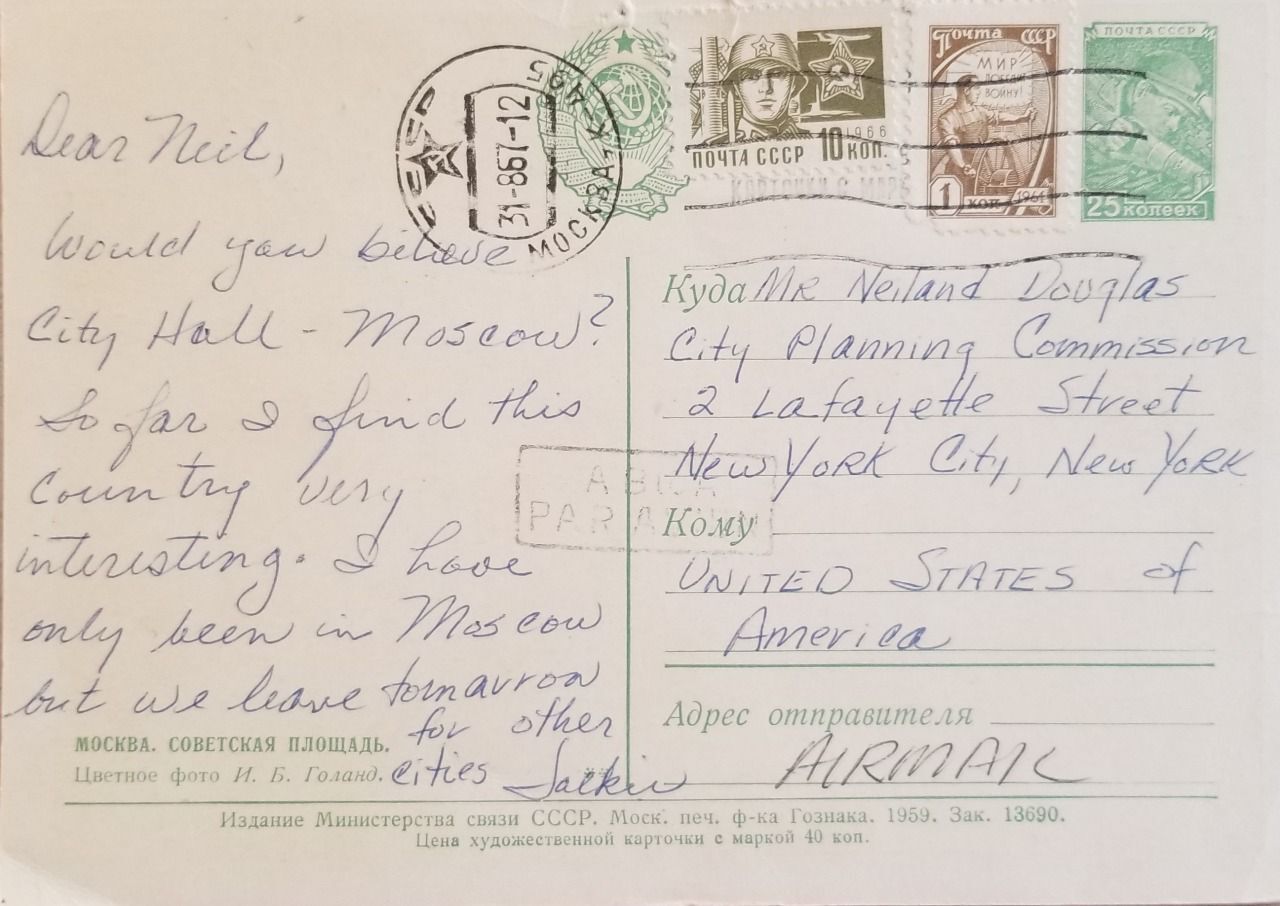 Dear Neil,
Would you believe
City Hall - Moscow?
So far I find this
country very
interesting. I have
only been in Moscow
but we leave tomorrow
for other
cities
МОСКВА. СОВЕТСКАЯ ПЛОЩАДЬ.
Цветное фото И. Б. Голанд.
СССР
31-867-12
МОСКВА
ПОЧТА СССР 10 КОП.
1966
КАРТОЧКИ С МАР
Почта СССР
МИР
ПОБЕДИТ
ВОЙНУ!
1 КОП 1961
ПОЧТА СССР
25 копеек
Куда Mr Neiland Douglas
City Planning Commission
2 Lafayette Street
New York City, New York
АВИА
PAR AVION
Кому
UNITED STATES of
America
Адрес отправителя
AIRMAIL
Издание Министерства связи СССР. Моск. печ. ф-ка Гознака. 1959. Зак. 13690.
Цена художественной карточки с маркой 40 коп.